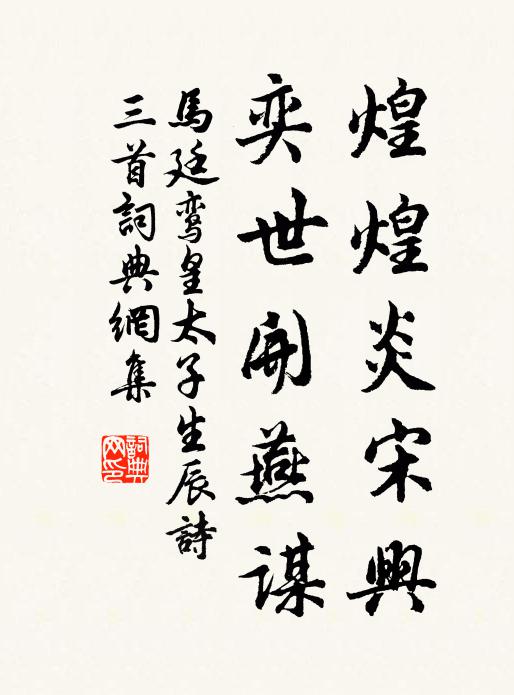 煌煌炎宋興
奕世開燕謀
馬廷鸾皇太子生辰詩
三首詞典網集
詞典网印